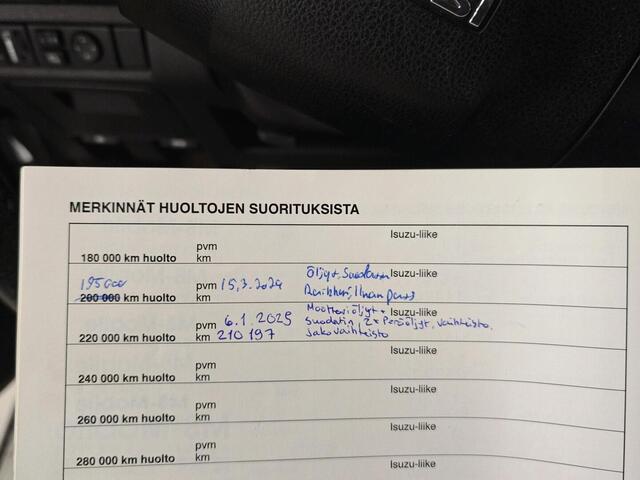 MERKINNÄT HUOLTOJEN SUORITUKSISTA
Isuzu-liike
pvm
180 000 km huolto km
195000 Öljyt, Suodatin Isuzu-liike
pvm 15,3.2024
200 000 km huolto km
Moottoriöljyt + Isuzu-liike
pvm 6.1.2025 Suodatin, 2x Peräöljyt, vaihteisto,
220 000 km huolto km 210 197 jakovaihteisto
Isuzu-liike
pvm
240 000 km huolto km
Isuzu-liike
pvm
260 000 km huolto km
Isuzu-liike
pvm
280 000 km huolto km
Isuzu-liike